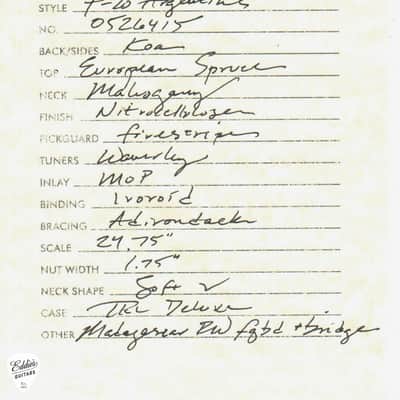 STYLE F-20 Argentine
NO. 0526415
BACK/SIDES Koa
TOP European Spruce
NECK Mahogany
FINISH Nitrocellulose
PICKGUARD firestripe
TUNERS Waverly
INLAY MOP
BINDING Ivoroid
BRACING Adirondack
SCALE 24.75"
NUT WIDTH 1.75"
NECK SHAPE Soft V
CASE TKL Deluxe
OTHER Madagascar RW fgbd + bridge
Eddie's
GUITARS